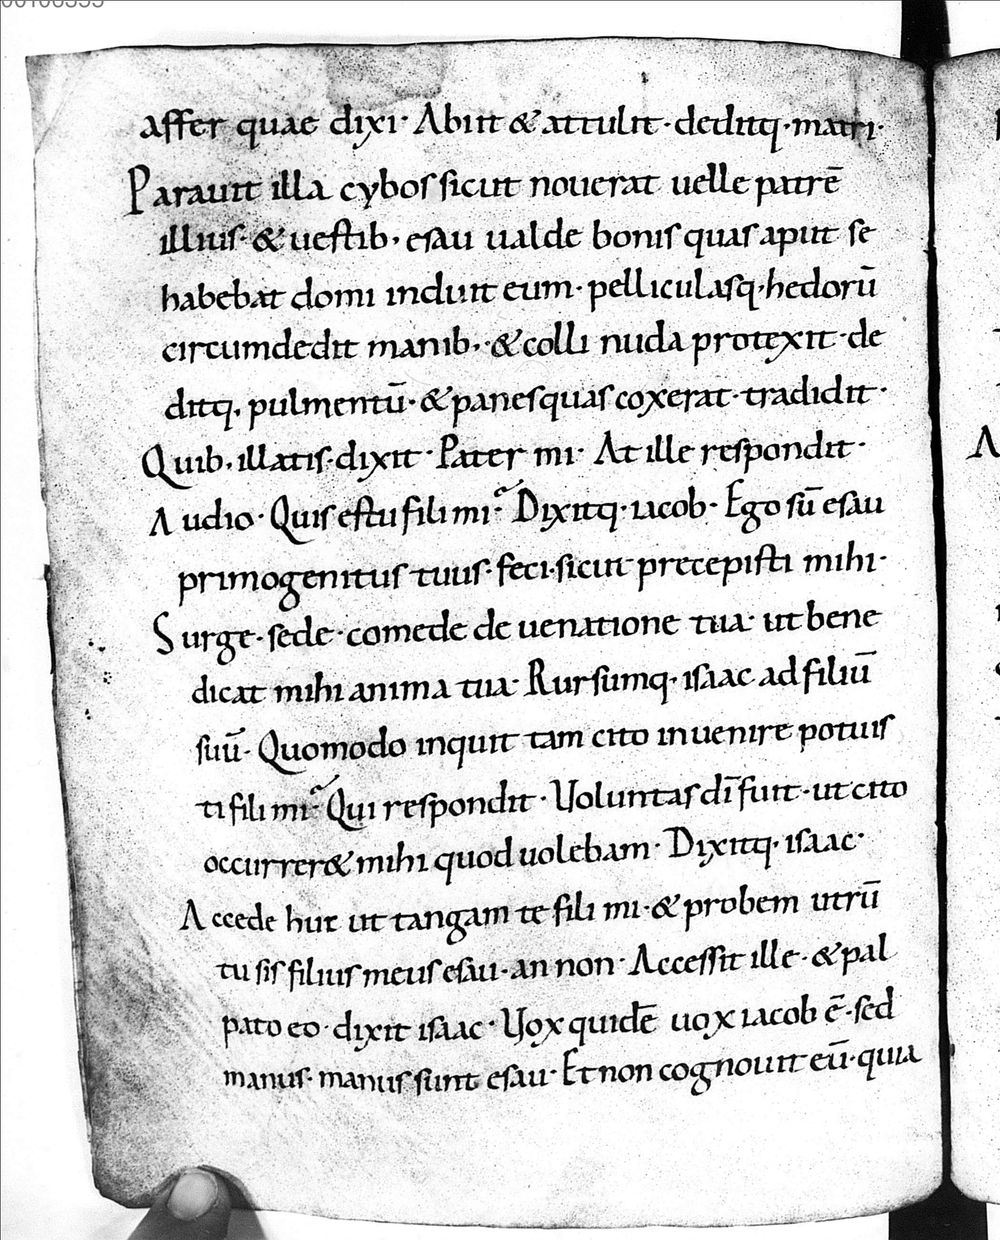 affer quae dixi · Abiit & attulit · deditq· matri ·
Parauit illa cybos sicut nouerat uelle patrē
illius · & uestib· esau ualde bonis quas aput se
habebat domi induit eum · pelliculasq· hedorū
circumdedit manib· & colli nuda protexit · de
ditq· pulmentū · & panes quas coxerat · tradidit ·
Quib· illatis · dixit · Pater mi · At ille respondit ·
Audio · Quis es tu fili mi? Dixitq· iacob · Ego sū esau
primogenitus tuus · feci · sicut precepisti mihi ·
Surge · sede · comede de uenatione tua · ut bene
dicat mihi anima tua · Rursumq· isaac ad filiū
suū · Quomodo inquit tam cito inuenire potuis
ti fili mi? Qui respondit · Uoluntas dī fuit · ut cito
occurrer& mihi quod uolebam · Dixitq· isaac ·
Accede huc ut tangam te fili mi · & probem utrū
tu sis filius meus esau · an non · Accessit ille · & pal
pato eo · dixit isaac · Uox quidē uox iacob ē · sed
manus · manus sunt esau · Et non cognouit eū · quia